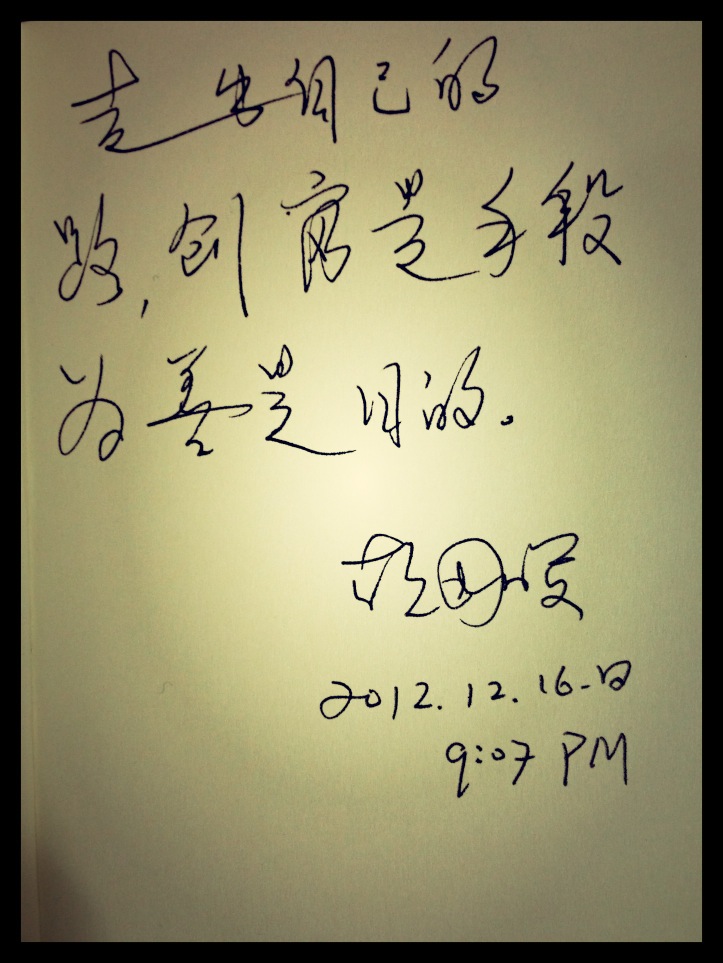 走出自己的
路,创富是手段
为善是目的。
2012.12.16.日
9:07 PM